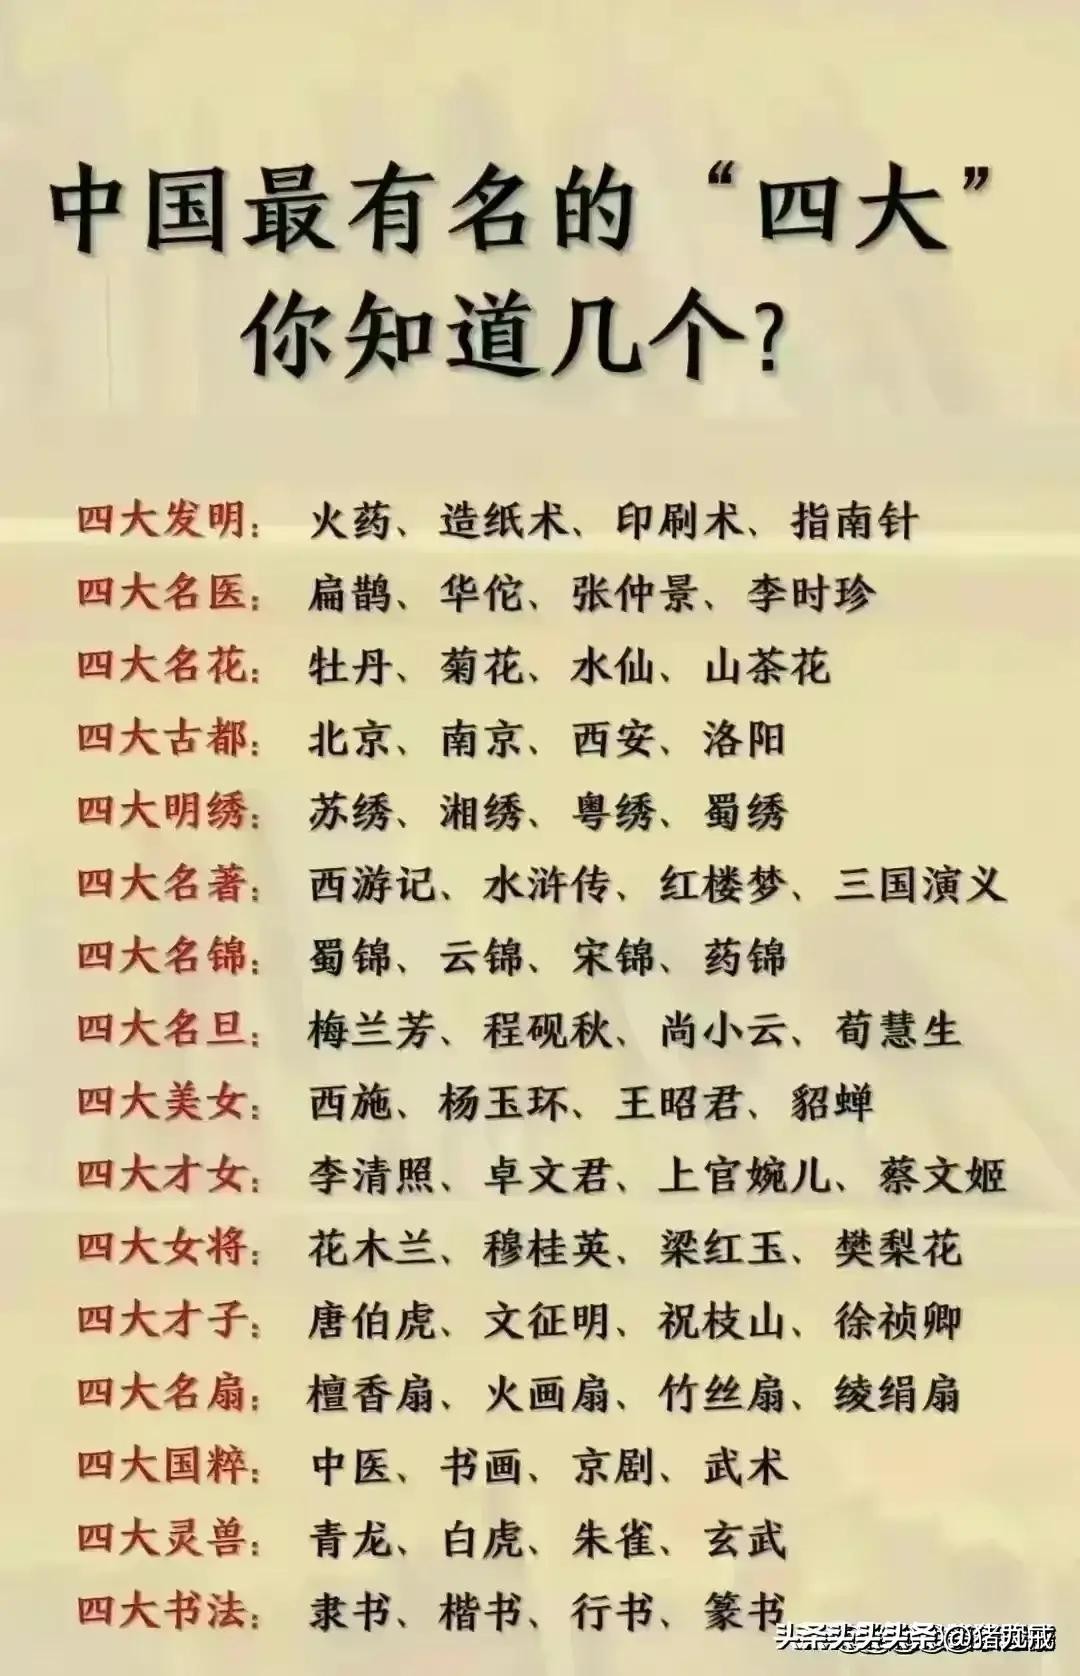 中国最有名的“四大”
你知道几个?
四大发明：火药、造纸术、印刷术、指南针
四大名医：扁鹊、华佗、张仲景、李时珍
四大名花：牡丹、菊花、水仙、山茶花
四大古都：北京、南京、西安、洛阳
四大明绣：苏绣、湘绣、粤绣、蜀绣
四大名著：西游记、水浒传、红楼梦、三国演义
四大名锦：蜀锦、云锦、宋锦、药锦
四大名旦：梅兰芳、程砚秋、尚小云、荀慧生
四大美女：西施、杨玉环、王昭君、貂蝉
四大才女：李清照、卓文君、上官婉儿、蔡文姬
四大女将：花木兰、穆桂英、梁红玉、樊梨花
四大才子：唐伯虎、文征明、祝枝山、徐祯卿
四大名扇：檀香扇、火画扇、竹丝扇、绫绢扇
四大国粹：中医、书画、京剧、武术
四大灵兽：青龙、白虎、朱雀、玄武
四大书法：隶书、楷书、行书、篆书